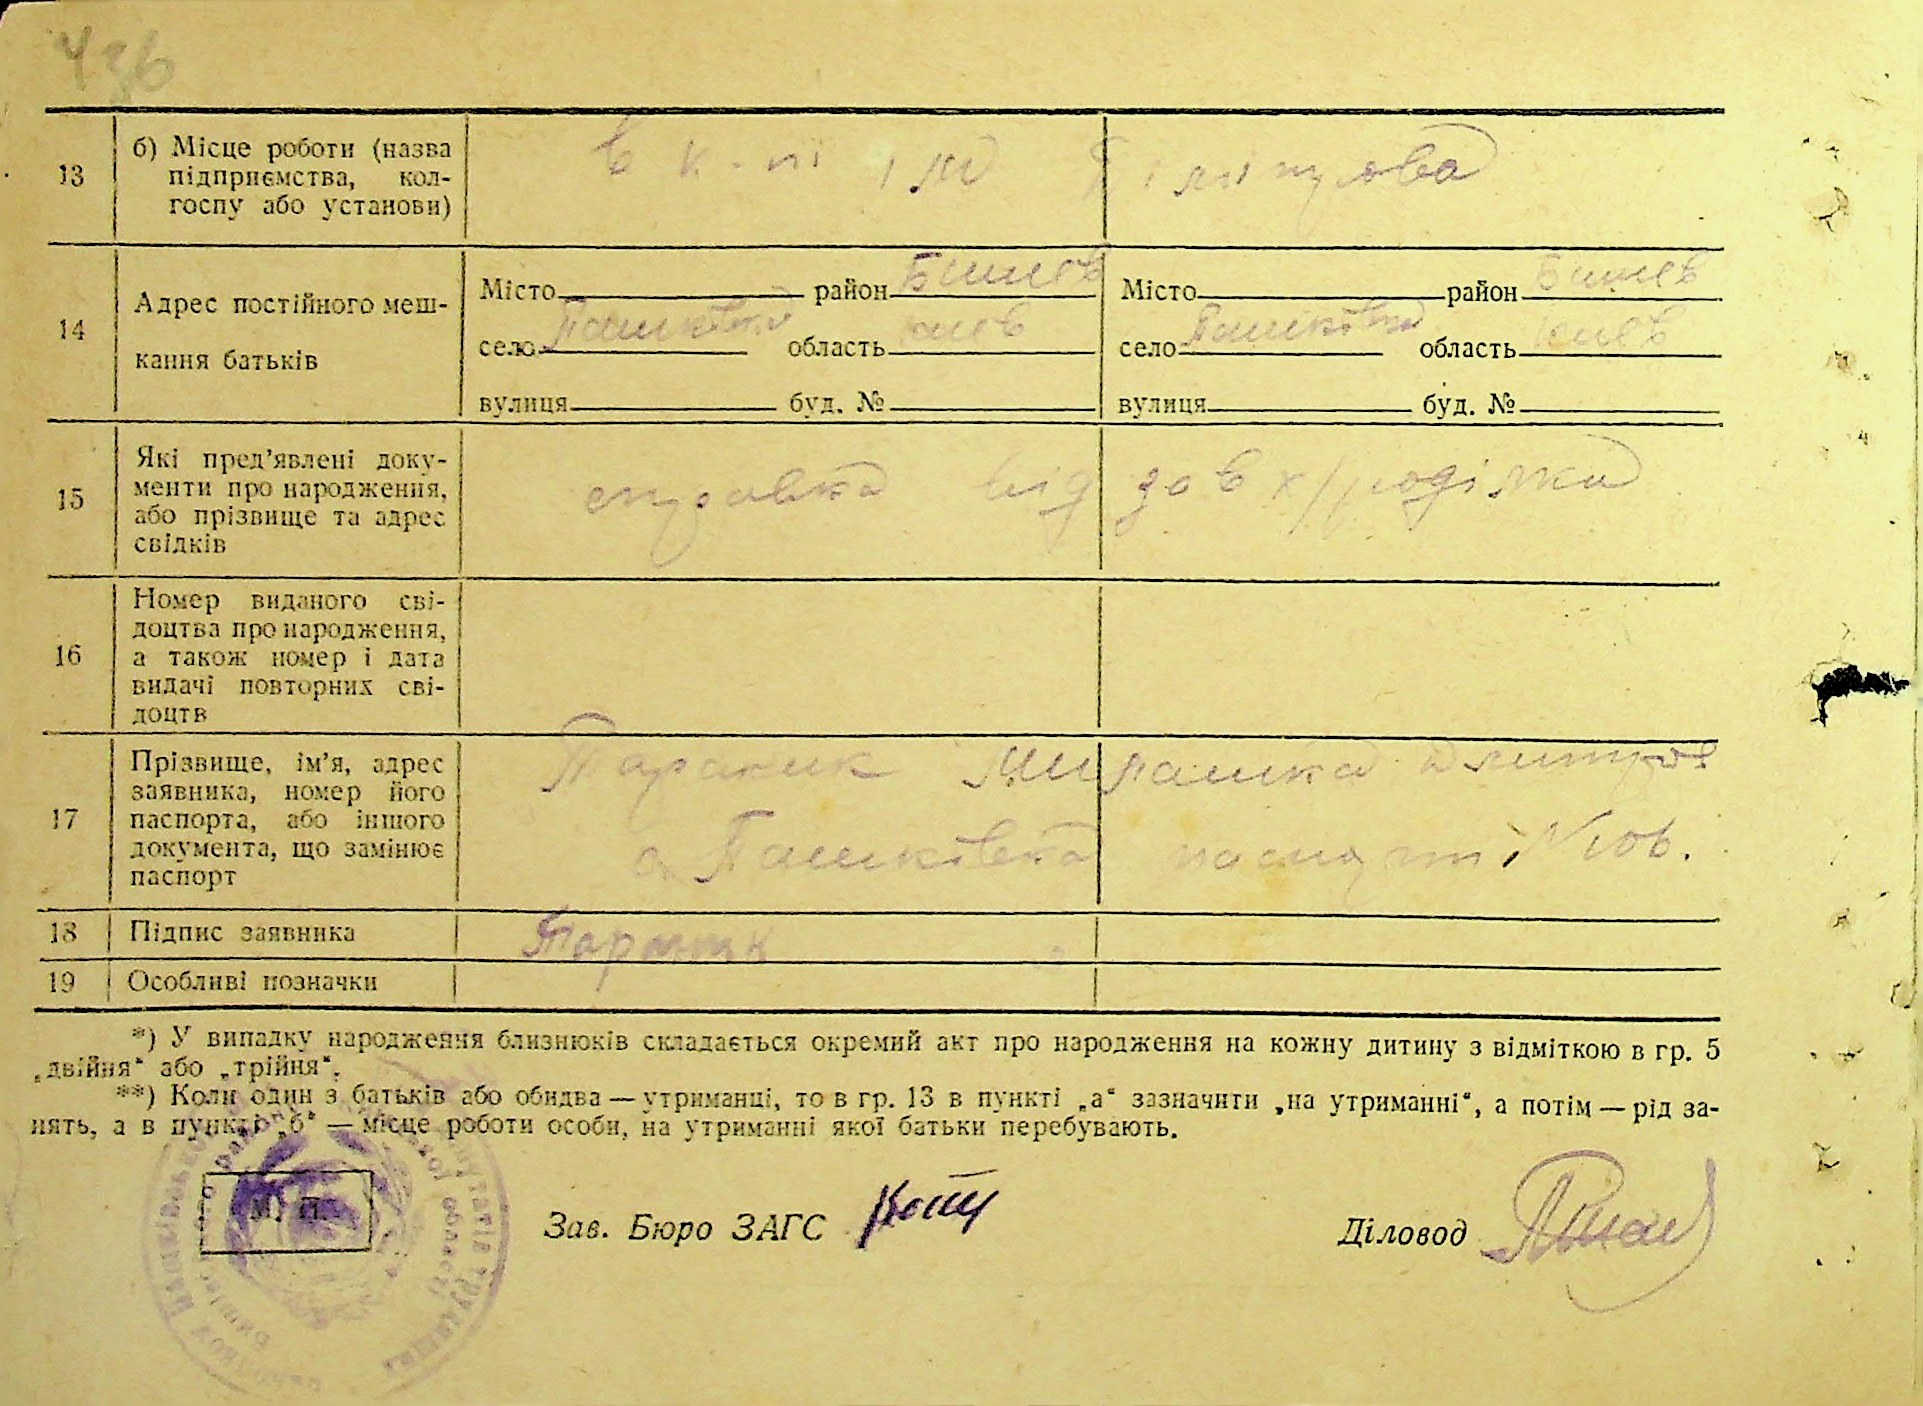 436
13
б) Місце роботи (назва
підприємства, кол-
госпу або установи)
в к-пі ім
14
Адрес постійного меш-
кання батьків
Місто район Бишев
село Пашківка область Киев
вулиця буд. №
Місто район Бишев
село Пашківка область Киев
вулиця буд. №
15
Які пред’явлені доку-
менти про народження,
або прізвище та адрес
свідків
справка від зав
16
Номер виданого сві-
доцтва про народження,
а також номер і дата
видачі повторних сві-
доцтв
17
Прізвище, ім’я, адрес
заявника, номер його
паспорта, або іншого
документа, що замінює
паспорт
Тараник
с. Пашківка
18
Підпис заявника
Тараник
19
Особливі позначки
*) У випадку народження близнюків складається окремий акт про народження на кожну дитину з відміткою в гр. 5
„двійня“ або „трійня“.
**) Коли один з батьків або обидва — утриманці, то в гр. 13 в пункті „а“ зазначити „на утриманні“, а потім — рід за-
нять, а в пункті „б“ — місце роботи особи, на утриманні якої батьки перебувають.
М. П.
Зав. Бюро ЗАГС
Діловод